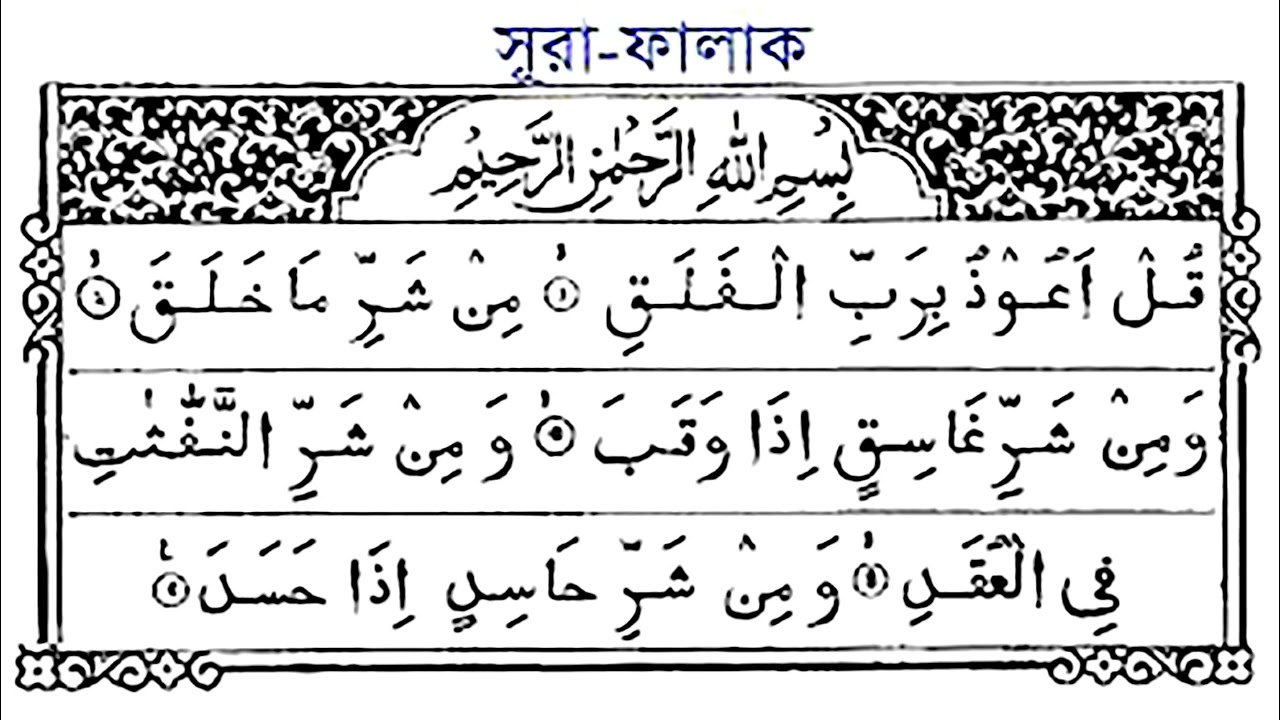 সূরা-ফালাক
بِسْمِ اللّٰهِ الرَّحْمٰنِ الرَّحِيْمِ
قُلْ اَعُوْذُ بِرَبِّ الْفَلَقِ ۙ مِنْ شَرِّ مَا خَلَقَ ۙ
وَمِنْ شَرِّ غَاسِقٍ اِذَا وَقَبَ ۙ وَ مِنْ شَرِّ النَّفّٰثٰتِ
فِي الْعُقَدِ ۙ وَ مِنْ شَرِّ حَاسِدٍ اِذَا حَسَدَ